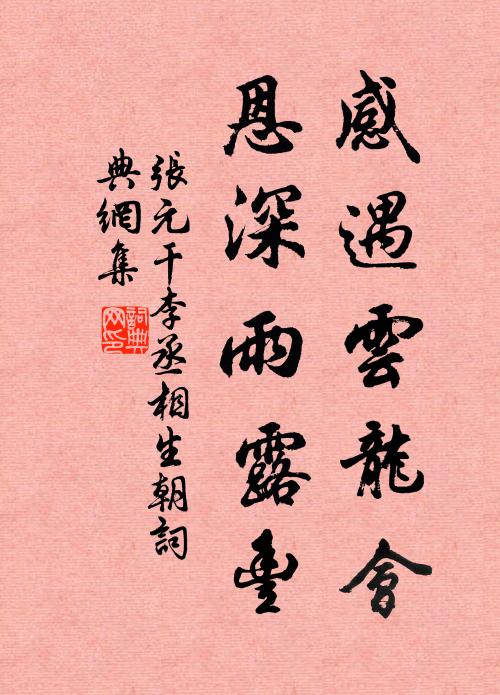 感遇雲龍會
恩深雨露豊
張元干李丞相生朝詞
典網集
詞典網印